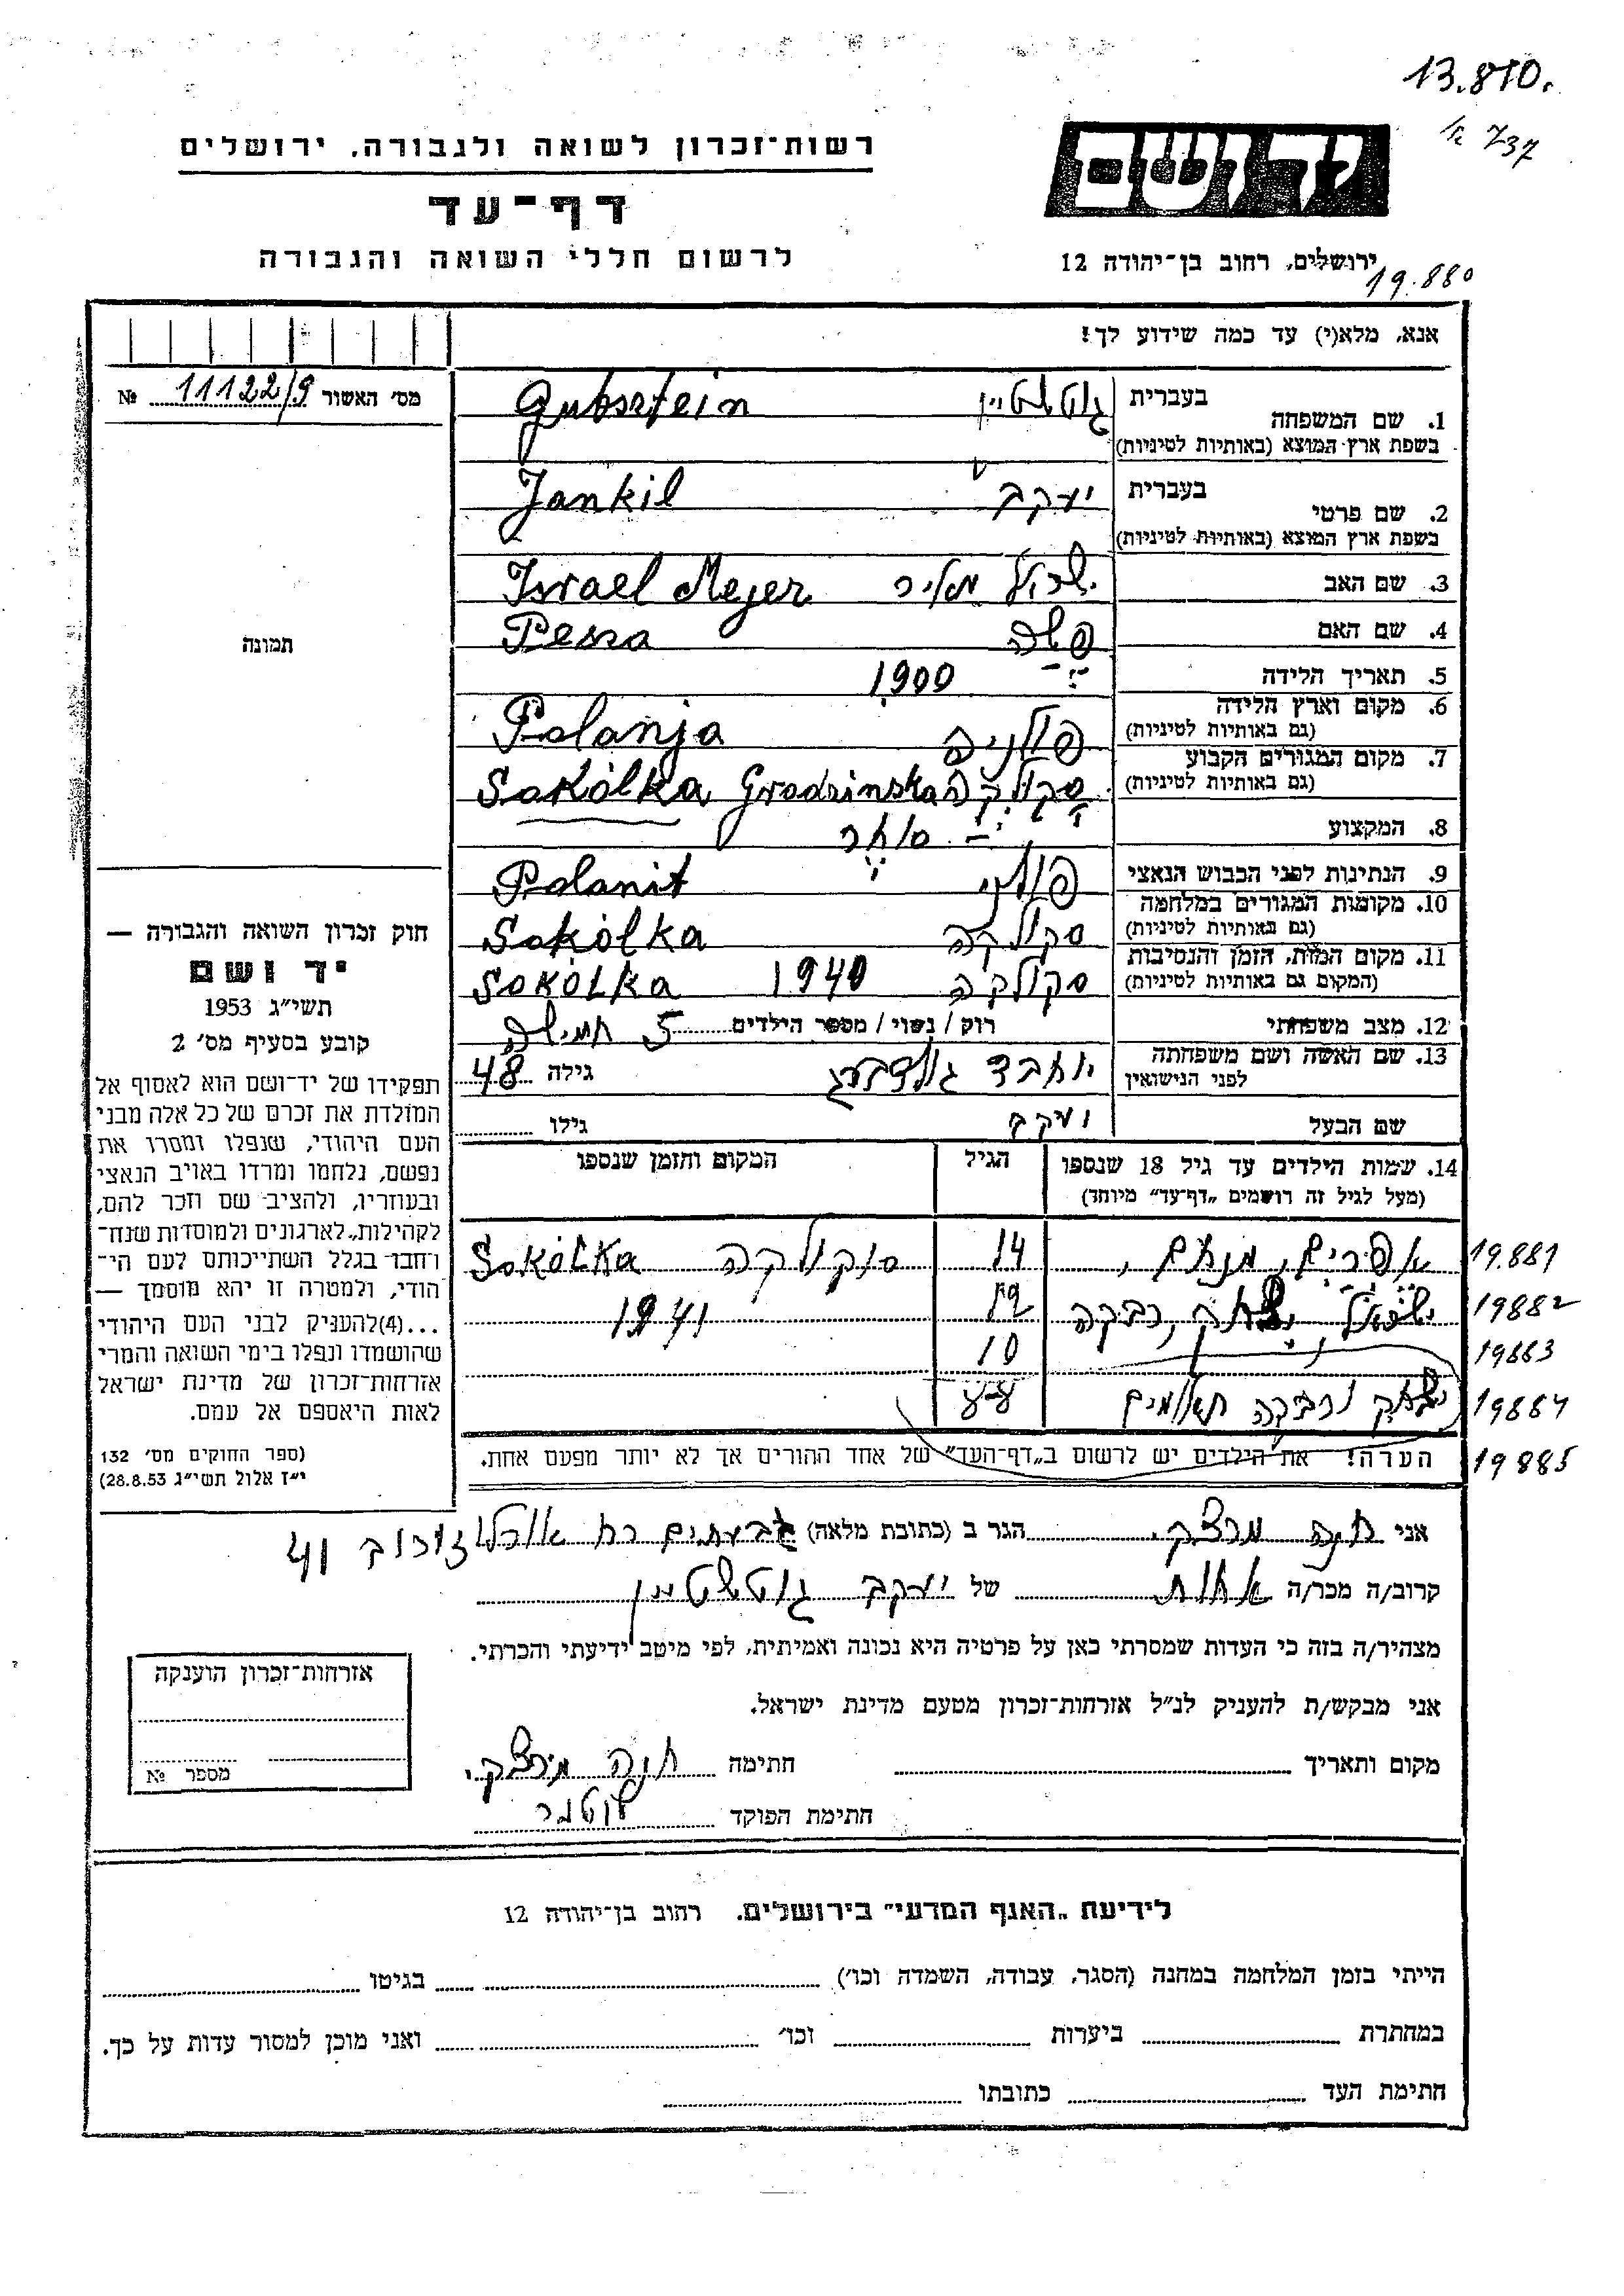 13.870.
737 א/
רשות־זכרון לשואה ולגבורה. ירושלים
יד ושם
דף־עד
לרשום חללי השואה והגבורה
ירושלים, רחוב בן־יהודה 12
19.880
אנא, מלא(י) עד כמה שידוע לך!
מס׳ האשור 11122/9 №
1. שם המשפחה בעברית גוטשטיין Gutsztein
בשפת ארץ המוצא (באותיות לטיניות)
2. שם פרטי בעברית יעקב Jankil
בשפת ארץ המוצא (באותיות לטיניות)
3. שם האב ישראל מאיר Israel Mejer
4. שם האם פשה Pessa
5. תאריך הלידה 1900
6. מקום וארץ הלידה פולנים Polanja
(גם באותיות לטיניות)
7. מקום המגורים הקבוע סקולקה Sokólka Grodzinska
(גם באותיות לטיניות)
8. המקצוע סוחר
9. הנתינות לפני הכבוש הנאצי פולני Polanit
10. מקומות המגורים במלחמה סקולקה Sokólka
(גם באותיות לטיניות)
11. מקום המות, הזמן והנסיבות סקולקה 1940 SOKÓLKA
(המקום גם באותיות לטיניות)
12. מצב משפחתי רוק / נשוי / מספר הילדים 5 חמישה
13. שם האשה ושם משפחתה יוכבד גולדברג גילה 48
לפני הנישואין
שם הבעל יעקב גילו
14. שמות הילדים עד גיל 18 שנספו הגיל המקום והזמן שנספו
(מעל לגיל זה רושמים „דף־עד״ מיוחד)
אפרים, מנחם, 14 סוקולקה Sokólka 19.881
ישראל, יצחק, רבקה 12 1941 19882
10 19883
יצחק ורבקה תאומים 19884
הערה! את הילדים יש לרשום ב„דף־העד״ של אחד ההורים אך לא יותר מפעם אחת. 19885
תמונה
חוק זכרון השואה והגבורה —
יד ושם
תשי״ג 1953
קובע בסעיף מס׳ 2
תפקידו של יד־ושם הוא לאסוף אל
המולדת את זכרם של כל אלה מבני
העם היהודי, שנפלו ומסרו את
נפשם, נלחמו ומרדו באויב הנאצי
ובעוזריו, ולהציב שם וזכר להם,
לקהילות, לארגונים ולמוסדות שנח־
רחבו בגלל השתייכותם לעם הי־
הודי, ולמטרה זו יהא מוסמך —
...(4)להעניק לבני העם היהודי
שהושמדו ונפלו בימי השואה והמרי
אזרחות־זכרון של מדינת ישראל
לאות היאספם אל עמם.
(ספר החוקים מס׳ 132
י״ז אלול תשי״ג 28.8.53)
אני חנה מרצקי הגר ב (כתובת מלאה) גבעתיים רח 41
קרוב/ה מכר/ה אחות של יעקב גוטשטיין
מצהיר/ה בזה כי העדות שמסרתי כאן על פרטיה היא נכונה ואמיתית, לפי מיטב ידיעתי והכרתי.
אני מבקש/ת להעניק לנ״ל אזרחות־זכרון מטעם מדינת ישראל.
מקום ותאריך חתימה חנה מרצקי
חתימת הפוקד
אזרחות־זכרון הוענקה
מספר №
לידיעת „האגף המדעי״ בירושלים. רחוב בן־יהודה 12
הייתי בזמן המלחמה במחנה (הסגר, עבודה, השמדה וכו׳) בגיטו
במחתרת ביערות וכו׳ ואני מוכן למסור עדות על כך.
חתימת העד כתובתו